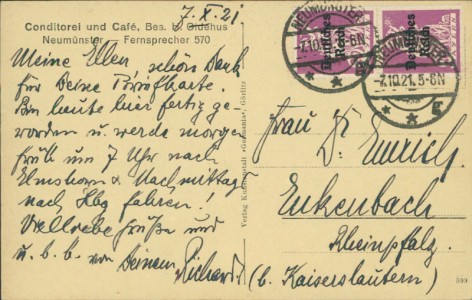 7. X. 21.
Conditorei und Café, Bes. J. Oldehus
Neumünster — Fernsprecher 570
Meine Ellen, schön Dank
für Deine Briefkarte.
Bin heute hier fertig ge-
worden u. werde morgen
früh um 7 Uhr nach
Elmshorn & Nachmittags
nach Hbg fahren!
Vielliebe Grüße und
u. b. b. von Deinem Richard
Verlag Kunstanstalt »Germania«, Görlitz
NEUMÜNSTER
-7.10.21. 5-6N
Deutsches Reich
NEUMÜNSTER
-7.10.21. 5-6N
Deutsches Reich
Frau Dr. Emrich.
Enkenbach
Rheinpfalz.
(b. Kaiserslautern)